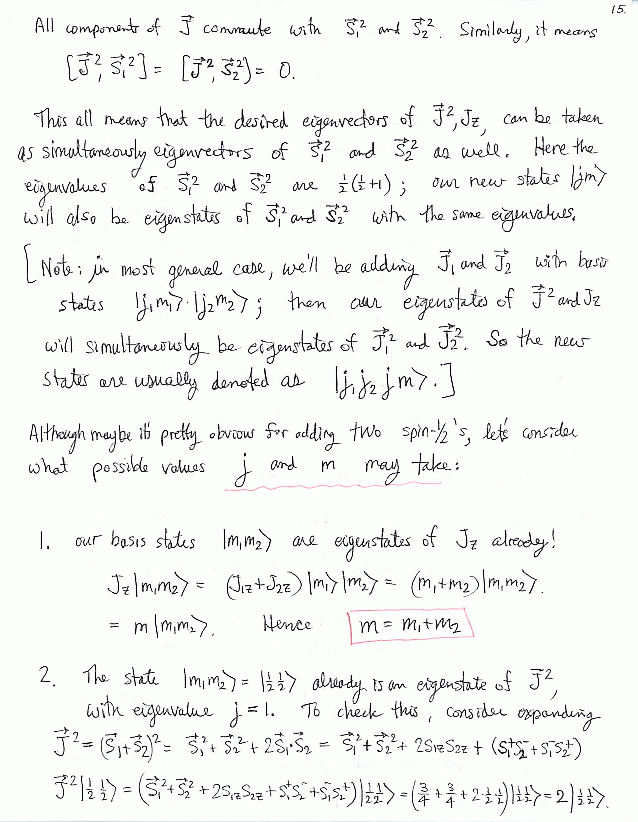 15.
All components of J⃗ commute with S⃗₁² and S⃗₂². Similarly, it means
[J⃗², S⃗₁²] = [J⃗², S⃗₂²] = 0.
This all means that the desired eigenvectors of J⃗², Jz, can be taken
as simultaneously eigenvectors of S⃗₁² and S⃗₂² as well. Here the
eigenvalues of S⃗₁² and S⃗₂² are ½(½+1) ; our new states |jm⟩
will also be eigenstates of S⃗₁² and S⃗₂² with the same eigenvalues.
[Note: in most general case, we'll be adding J⃗₁ and J⃗₂ with basis
states |j₁m₁⟩·|j₂m₂⟩ ; then our eigenstates of J⃗² and Jz
will simultaneously be eigenstates of J⃗₁² and J⃗₂². So the new
states are usually denoted as |j₁ j₂ j m⟩.]
Although maybe it's pretty obvious for adding two spin-½'s, let's consider
what possible values j and m may take:
1. our basis states |m₁m₂⟩ are eigenstates of Jz already!
Jz|m₁m₂⟩ = (J₁z+J₂z)|m₁⟩|m₂⟩ = (m₁+m₂)|m₁m₂⟩.
= m|m₁m₂⟩. Hence m = m₁+m₂
2. The state |m₁m₂⟩ = |½ ½⟩ already is an eigenstate of J⃗²,
with eigenvalue j = 1. To check this, consider expanding
J⃗² = (S⃗₁+S⃗₂)² = S⃗₁² + S⃗₂² + 2S⃗₁·S⃗₂ = S⃗₁² + S⃗₂² + 2S₁zS₂z + (S₁⁺S₂⁻ + S₁⁻S₂⁺)
J⃗²|½ ½⟩ = (S⃗₁²+S⃗₂²+2S₁zS₂z+S₁⁺S₂⁻+S₁⁻S₂⁺)|½ ½⟩ = (¾ + ¾ + 2·½·½)|½ ½⟩ = 2|½ ½⟩.